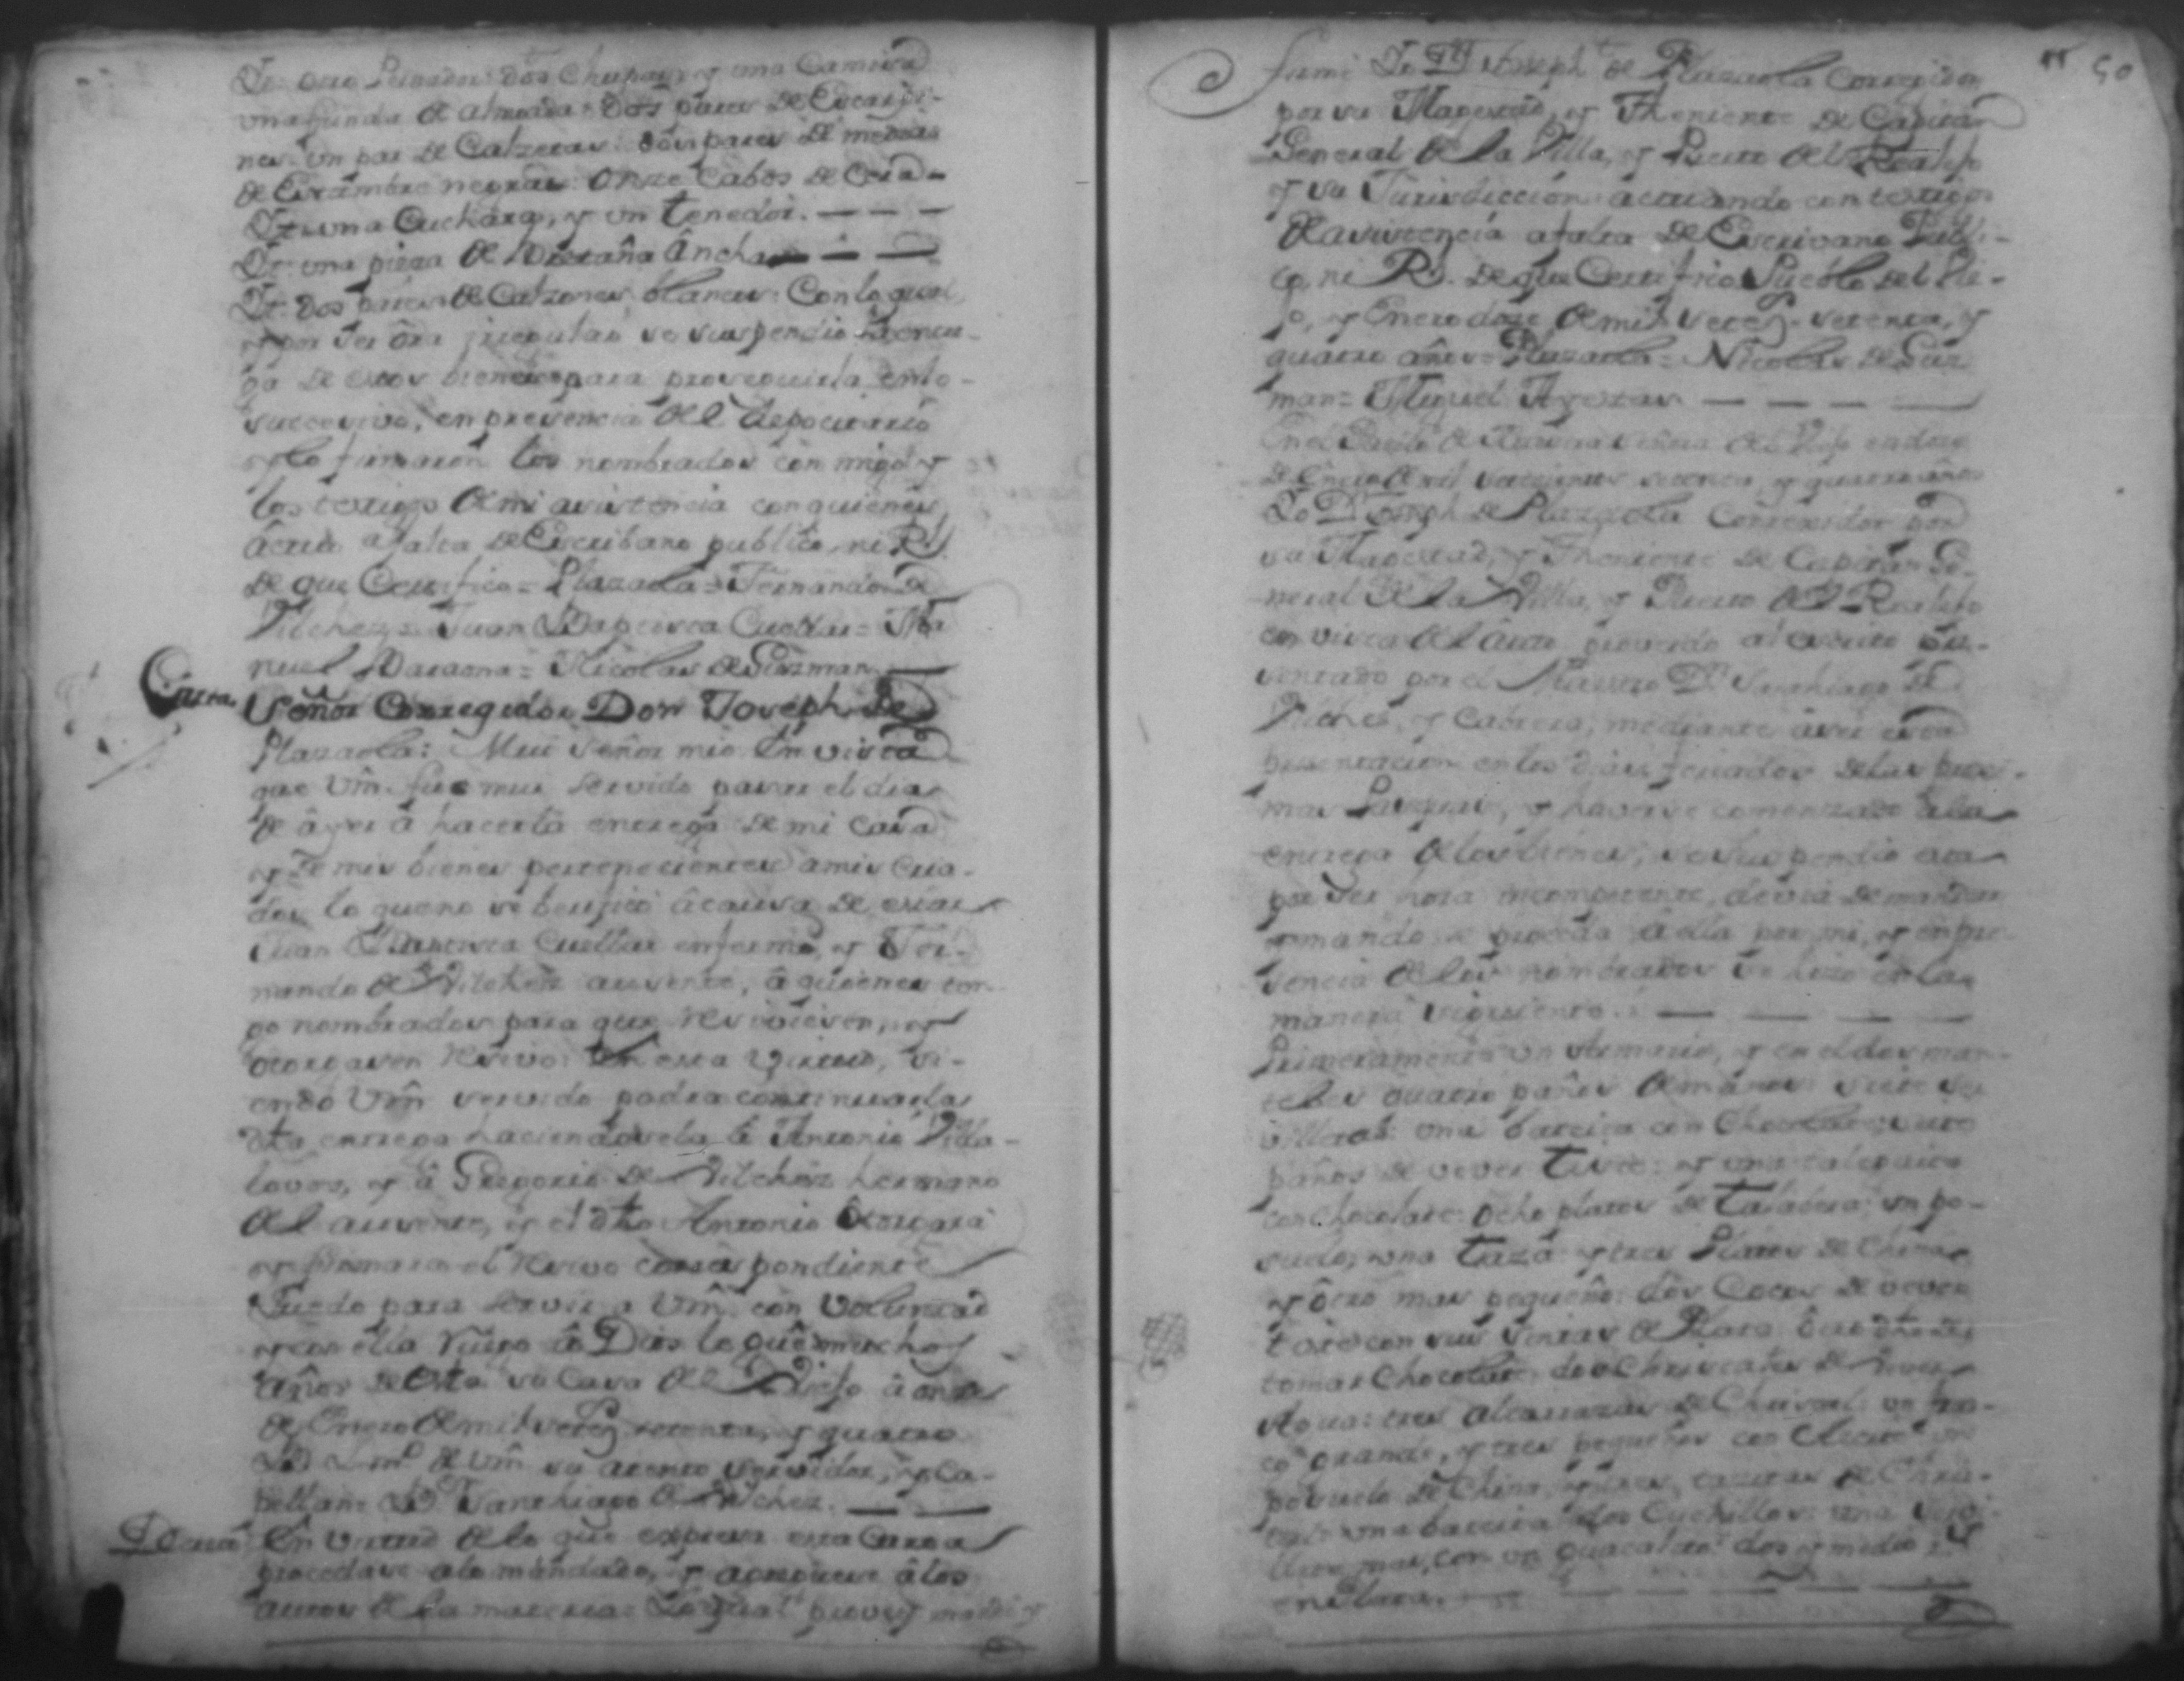 Yt. otro Peinador: dos Chupas, y una Camisa
una funda de almoada: dos pares de Escarpi-
nes: un par de Calzetas: dos pares de medias
de Estambre negras: Onze Cabos de Cera
Yt. una Cuchara, y un tenedor.
Yt. una pieza de Bretaña âncha
Yt. dos pares de Calzones blancos: Con lo qual,
y por ser óra irregular se suspendio la entre-
ga de estos bienes para proseguirla en lo
succesivo, en presencia del depocitario
y lo firmaron los nombrados con migo y
los testigos de mi asistencia con quienes
áctuo a falta de Escribano publico, ni Rl.
de que Certifico = Plazaola = Fernando de
Vilchez = Juan Baptista Cuellar = Ma
nuel Baraona = Nicolas de Guzman
Carta. Señor Corregidor Don Joseph de
Plazaola: Mui Señor mio. En vista
que Vm. fue mui servido pasar el dia
de âyer â hacerla entrega de mi Casa
y de mis bienes pertenecientes a mis Cria-
dos lo que no se berificó â causa de estar
Juan Baptista Cuellar enfermo, y Fer-
nando de Vilchez ausente, â quienes ten-
go nombrados para que reciviesen, y
otorgasen Recivo: En esta Virtud, si-
endo Vm̃ servido podra continuar la
dha entrega haciendosela â Antonio Villa-
lovos, y â Gregorio de Vilchez hermano
del ausente, y el dho Antonio Otorgará
y firmara el Recivo correspondiente
Quedo para servir a Vm̃. con Voluntad
y con ella ruego â Dios lo gue muchos
años de Esta su Casa del Viejo â onse
de Enero de mil setesˢ setenta, y quatro
B. L. mº de Vm̃ su atento servidor, y Ca-
pellan. Br. Santhiago de Vilchez.
Decreto En virtud de lo que expresa esta Carta
procedase a lo mandado, y agreguese â los
autos de la materia: Lo qual proveý mandé y
firmé Yo Dn. Joseph de Plazaola Corregidor
por su Magestad, y Theniente de Capitan
General de la Villa, y Puerto del Realejo
y su Jurisdiccion actuando con testigos
de asistencia a falta de Escrivano Publi-
co, ni Rl. de que Certifico Pueblo del Vie-
jo, y Enero doze de mil setesˢ. setenta, y
quatro años = Plazaola = Nicolas de Guz
man = Miguel
En el Pueblo de del Viejo en doze
de Enero de mil setecientos setenta, y quatro años
Yo Dn. Joseph de Plazaola Corregidor por
su Magestad, y Theniente de Capitan Ge-
neral de la Villa, y Puerto del Realejo
en vista del âuto proveido al escrito pre-
sentado por el Maestro Dn. Santhiago de
Vilches, y Cabrera, mediante aver esta
presentacion en los dias feriados de las proxi-
mas Pasquas, y haverse comenzado â la
entrega de los bienes, se suspendio esta
por ser hora incompetente, devia de mandar
y mando se proceda â ella por mi, y en pre-
sencia de los nombrados se hizo en la
manera siguiente.
Primeramente un Armario, y en el dos man-
teles quatro paños de manos: siete ser
villetas: una batea con Chocolate: quatro
paños de vever
con Chocolate: Ocho platos de talabera: un po-
suelo, una taza y tres Platos de China
y ôtro mas pequeño: dos Cocos de vever
tiste con sus de Plata: ôtro dho de
tomar Chocolate, dos Christales de vever
Agua: tres alcarrazas de Christal: un fras-
co grande, y tres pequeños con Aceite: un
posuelo de China, y tres tazitas de Chris-
tal: una batea: dos Cuchillos: una
mas, con un guacalito: dos y medio rs
en Plata.